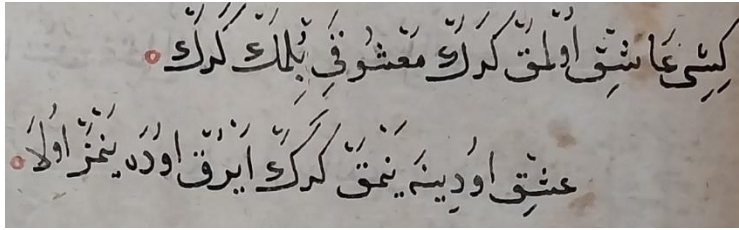 كِشِی عَاشِقْ اُولْمَقْ كَرَكْ مَعْشُوقِی بِلْمَكْ كَرَكْ
عِشْقِ اُودِینَه یَنْمَقْ كَرَكْ اَیْرُقْ اُودَه یَنْمَزْ اُولَا